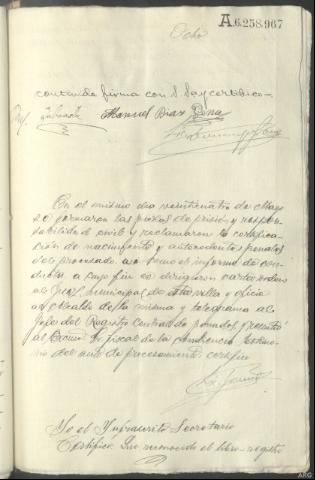 A.6.258.967
Ocho
contenido firma con S Sª y certifico.-
Manuel Diaz Pena
En el mismo dia veinticuatro de Mayo
se formaron las piezas de prisión y respon-
sabilidad civil y reclamaron la certifica-
ción de nacimiento y antecedentes penales
del procesado asi como el informe de con-
ducta a cuyo fin se dirigieron carta orden
al Juez municipal de esta villa y oficio
al Alcalde de la misma y telegrama al
Jefe del Registro Central de penados,
al Excmo Sr Fiscal de la Audiencia testimo-
nio del auto de procesamiento, certifico
Yo el Infrascrito Secretario
Certifico: Que reconocido el libro-registro
ARG